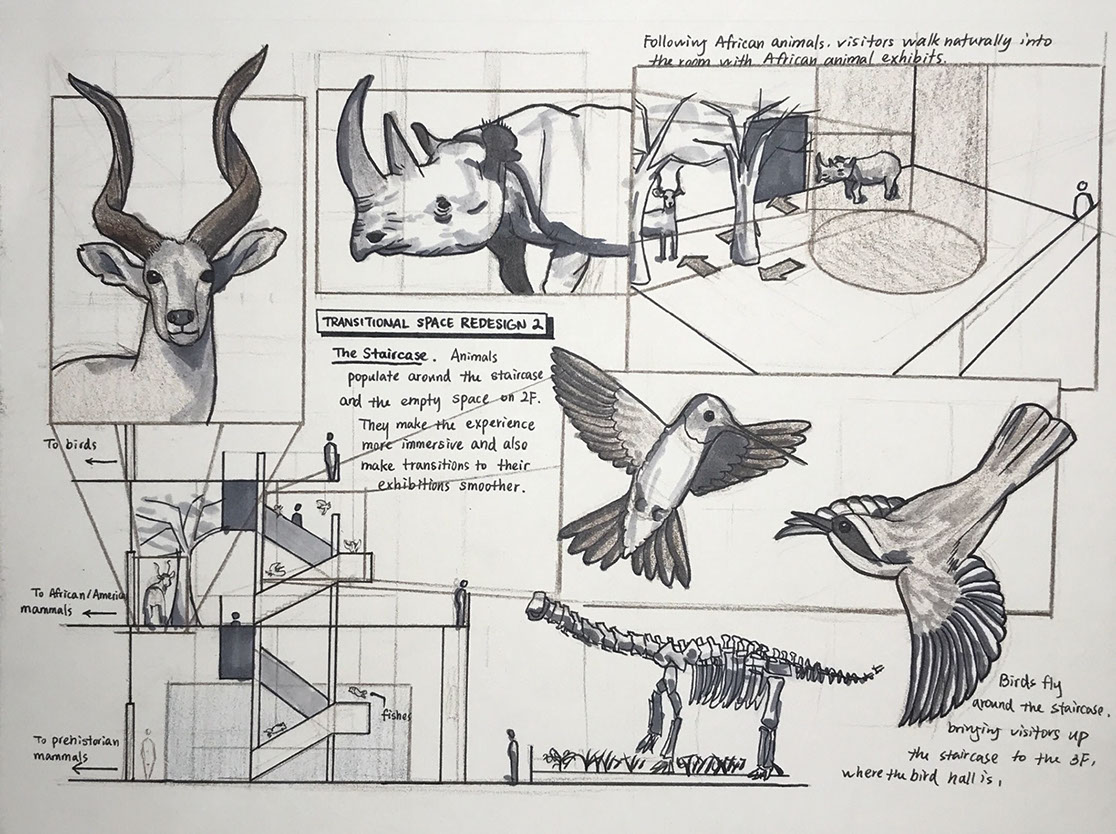 Following African animals. visitors walk naturally into
the room with African animal exhibits.
TRANSITIONAL SPACE REDESIGN 2
The Staircase. Animals
populate around the staircase
and the empty space on 2F.
They make the experience
more immersive and also
make transitions to their
exhibitions smoother.
To birds
To African/America
mammals
fishes
To prehistorian
mammals
Birds fly
around the staircase.
bringing visitors up
the staircase to the 3F,
where the bird hall is.